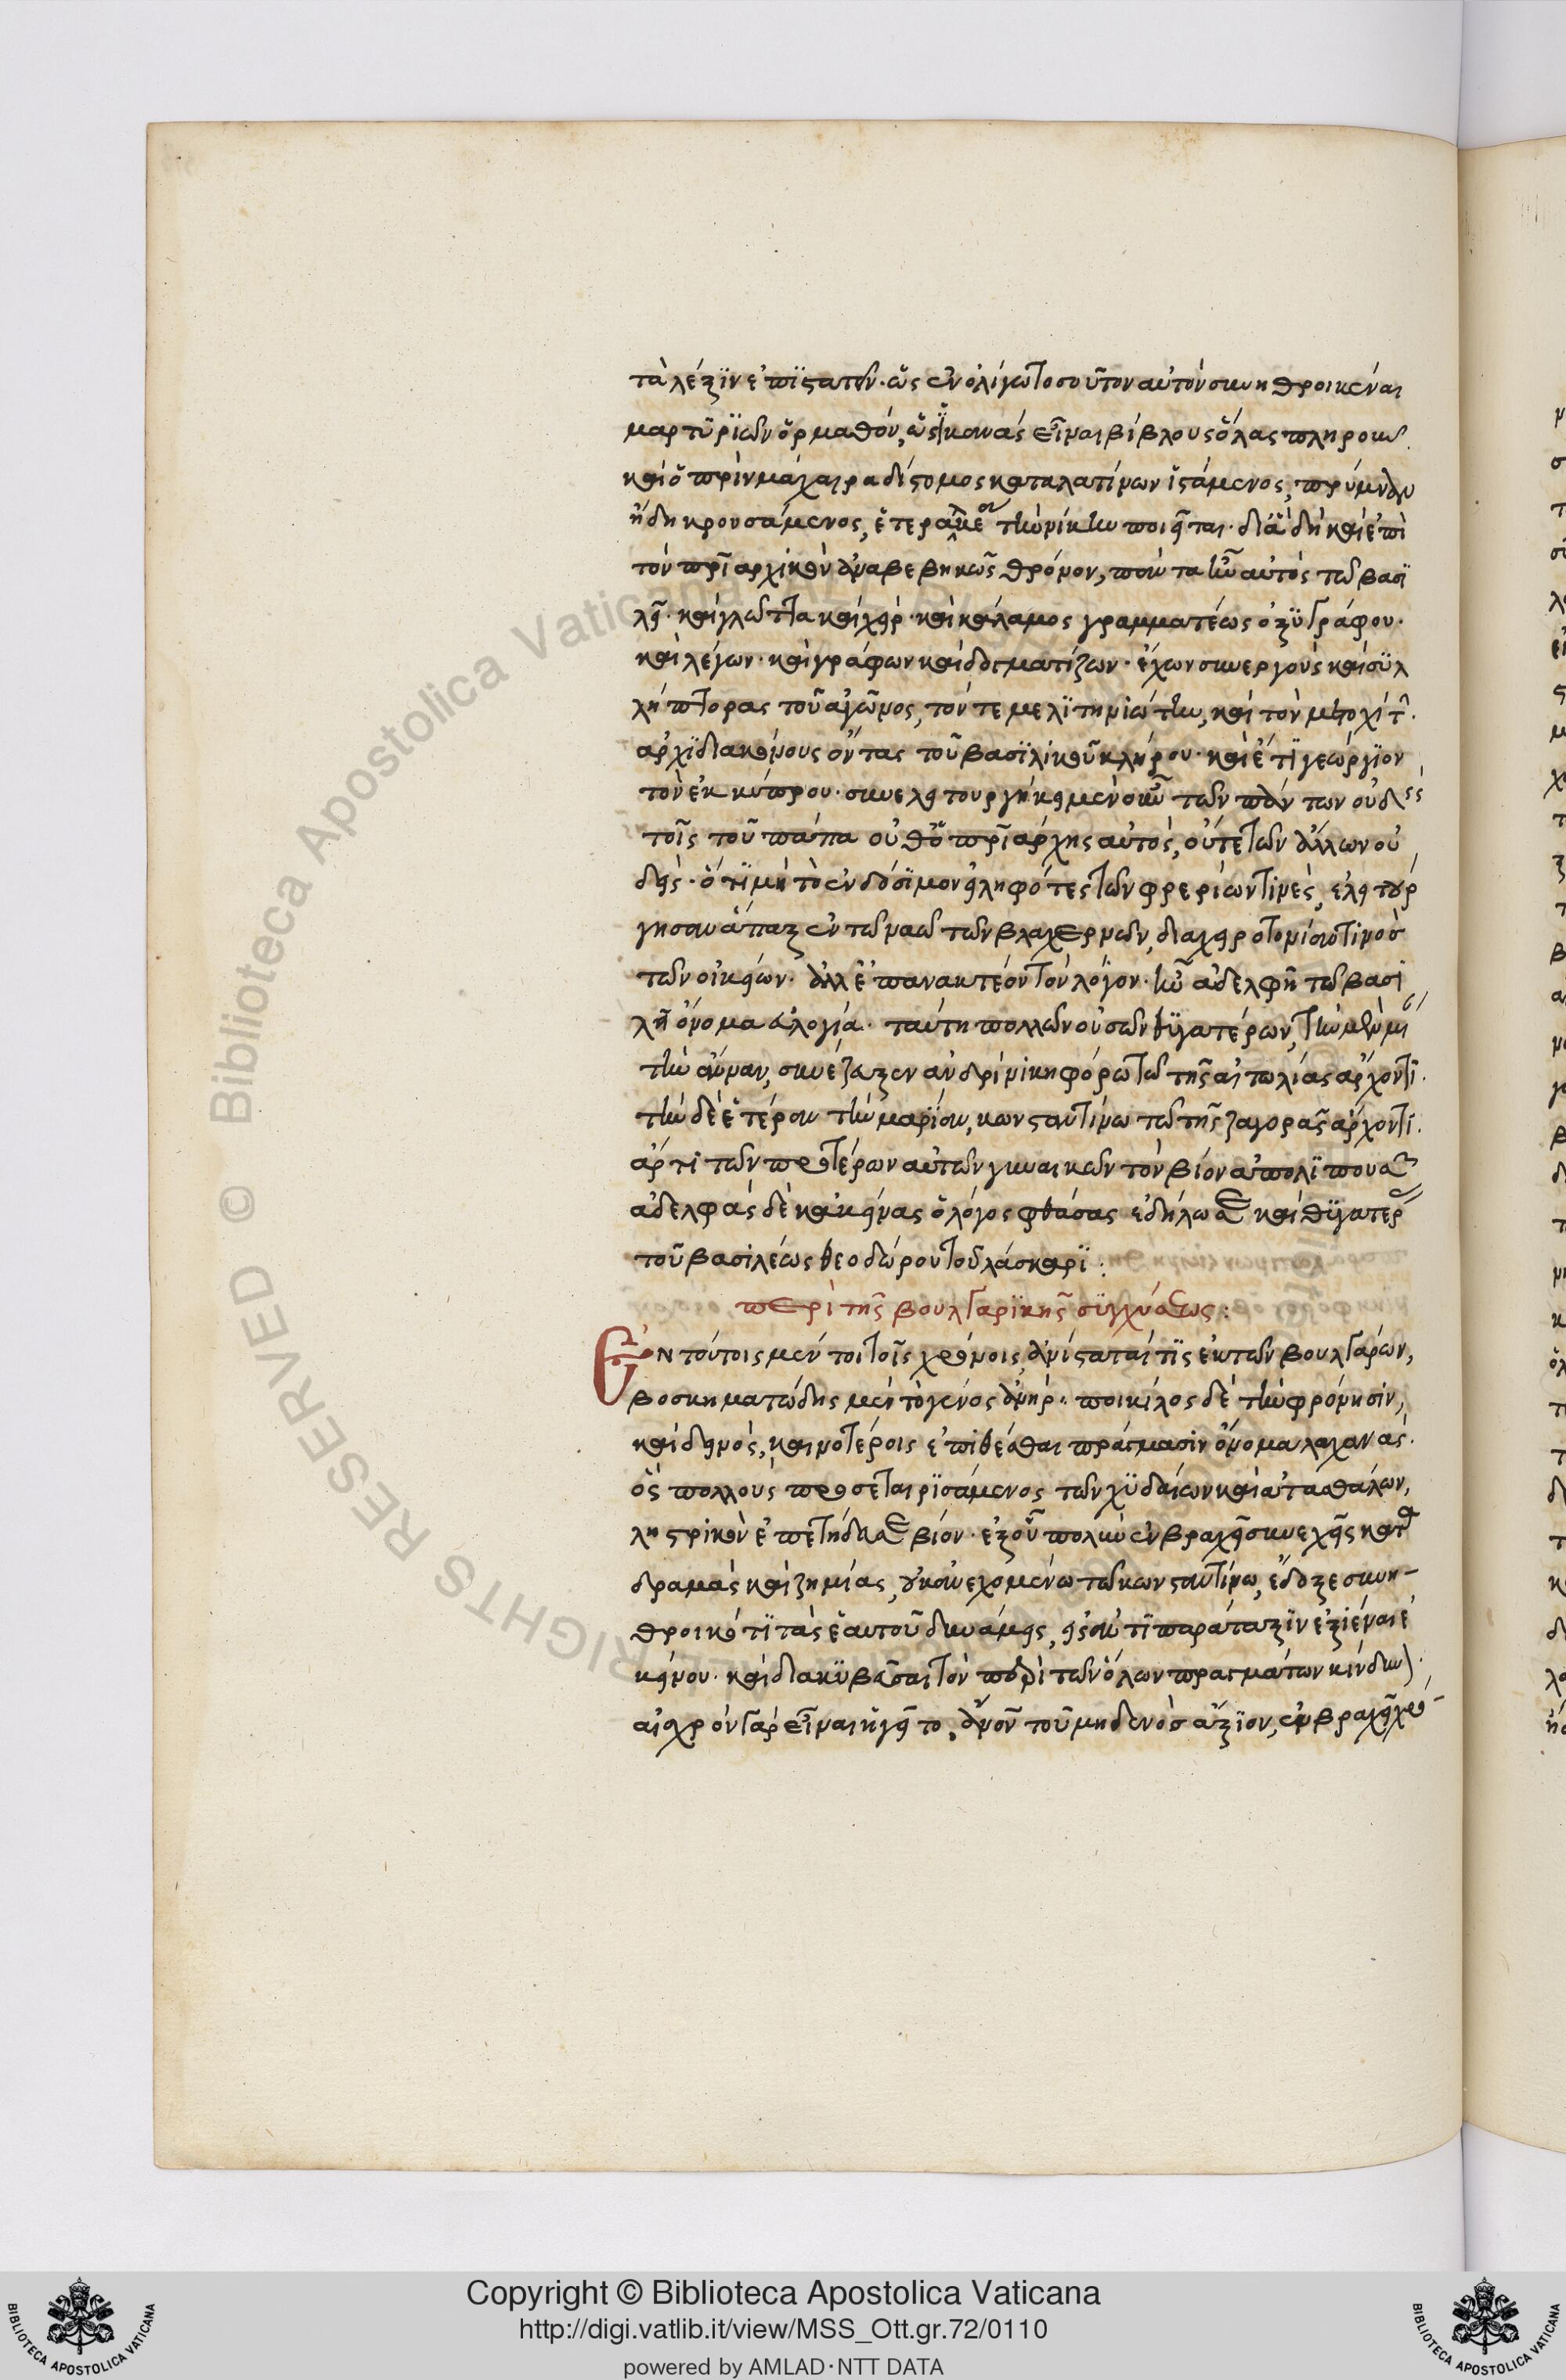 τὰ λέξιν ἐπιστατῶν. ὡς ἐν ὀλίγω τοσοῦτον αὐτὸν συνηθροικέναι
μαρτυριῶν ὁρμαθόν, ὡς ἱκανὰς εἶναι βίβλους ὅλας πληροῦν.
καὶ ὁ πρὶν μάχαιρα δίστομος κατὰ λατίνων ἱστάμενος, πρύμναν
ἤδη κρουσάμενος, ἑτεραλκέα τὴν νίκην ποιεῖται. διὰ δὴ καὶ ἐπὶ
τὸν πριαρχικὸν ἀναβεβηκὼς θρόνον, πάντα ἦν αὐτὸς τῶ βασι
λεῖ. καὶ γλῶττα καὶ χεὶρ. καὶ κάλαμος γραμματέως ὀξυγράφου.
καὶ λέγων. καὶ γράφων καὶ δογματίζων. ἔχων συνεργοὺς καὶ συλ
λήπτορας τοῦ ἀγῶνος, τόν τε μελιτηνιώτην, καὶ τὸν μετοχίτ.
ἀρχιδιακόνους ὄντας τοῦ βασιλικοῦ κλήρου. καὶ ἔτι γεώργιον
τὸν ἐκ κύπρου. συνελειτουργήκει μὲν οὖν τῶν πάντων οὐδεὶς
τοῖς τοῦ πάπα οὔθ' ὁ πριάρχης αὐτός, οὔτε τῶν ἄλλων οὐ
δείς. ὅτι μὴ τὸ ἐνδόσιμον εἰληφότες τῶν φρερίων τινὲς, ἐλειτούρ
γησαν ἅπαξ ἐν τῶ ναῶ τῶν βλαχερνῶν, διαχειροτονίαν τινὸς
τῶν οἰκείων. ἀλλ' ἐπανακτέον τὸν λόγον. ἦν ἀδελφὴ τῶ βασι
λεῖ ὄνομα εὐλογία. ταύτη πολλῶν οὐσῶν θυγατέρων, τὴν μὲν μίαν
τὴν ἄνναν, συνέζευξεν ἀνδρὶ νικηφόρω τῶ τῆς αἰτωλίας ἄρχοντι.
τὴν δὲ ἑτέραν τὴν μαρίαν, κωνσταντίνω τῶ τῆς ζαγορᾶς ἄρχοντι.
ἄρτι τῶν προτέρων αὐτῶν γυναικῶν τὸν βίον ἀπολιπουσῶν
ἀδελφὰς δὲ κἀκείνας ὁ λόγος φθάσας ἐδήλωσε καὶ θυγατέρας
τοῦ βασιλέως θεοδώρου τοῦ λάσκαρι:
περὶ τῆς βουλγαρικῆς συγχύσεως:
Ἐν τούτοις μέν τοι τοῖς χρόνοις, ἀνίσταταί τις ἐκ τῶν βουλγάρων,
βοσκηματώδης μὲν τὸ γένος ἀνήρ. ποικίλος δὲ τὴν φρόνησιν,
καὶ δεινὸς, καινοτέροις ἐπιθέσθαι πράγμασιν ὄνομα λαχανᾶς.
ὃς πολλοὺς προσεταιρισάμενος τῶν χυδαίων καὶ ἀτασθάλων,
ληστρικὸν ἐπετήδευσε βίον. ἐξ οὗ πολλὴν ἐν βραχεῖ συνεχεῖς κατα
δρομὰς καὶ ζημίας, οὐκ ἀνεχομένω τῶ κωνσταντίνω, ἔδοξε συνη-
θροικότι τὰς ἑαυτοῦ δυνάμεις, εἰς ἀντιπαράταξιν ἐξιέναι ἐ
κείνου. καὶ διακυβεῦσαι τὸν περὶ τῶν ὅλων πραγμάτων κίνδυνον.
αἰσχρὸν γὰρ εἶναι ἡγεῖτο, ἄνδρα τοῦ μηδενὸς ἄξιον, ἐν βραχεῖ χρό-
Copyright © Biblioteca Apostolica Vaticana
http://digi.vatlib.it/view/MSS_Ott.gr.72/0110
powered by AMLAD·NTT DATA